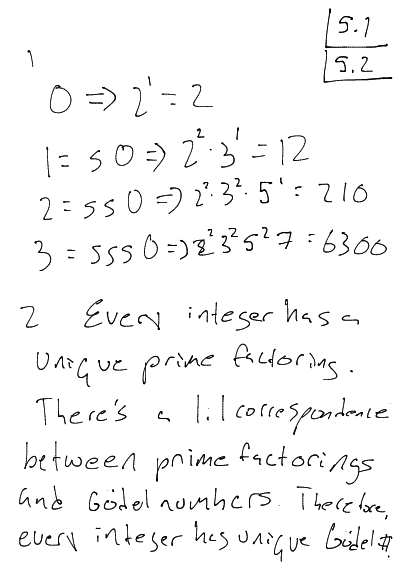 5.1
5.2
1
0 => 2¹ = 2
1 = S0 => 2²·3¹ = 12
2 = SS0 => 2²·3²·5¹ = 210
3 = SSS0 => 2²3²5²7 = 6300
2 Every integer has a
unique prime factoring.
There's a 1:1 correspondence
between prime factorings
and Gödel numbers. Therefore,
every integer has unique Gödel #